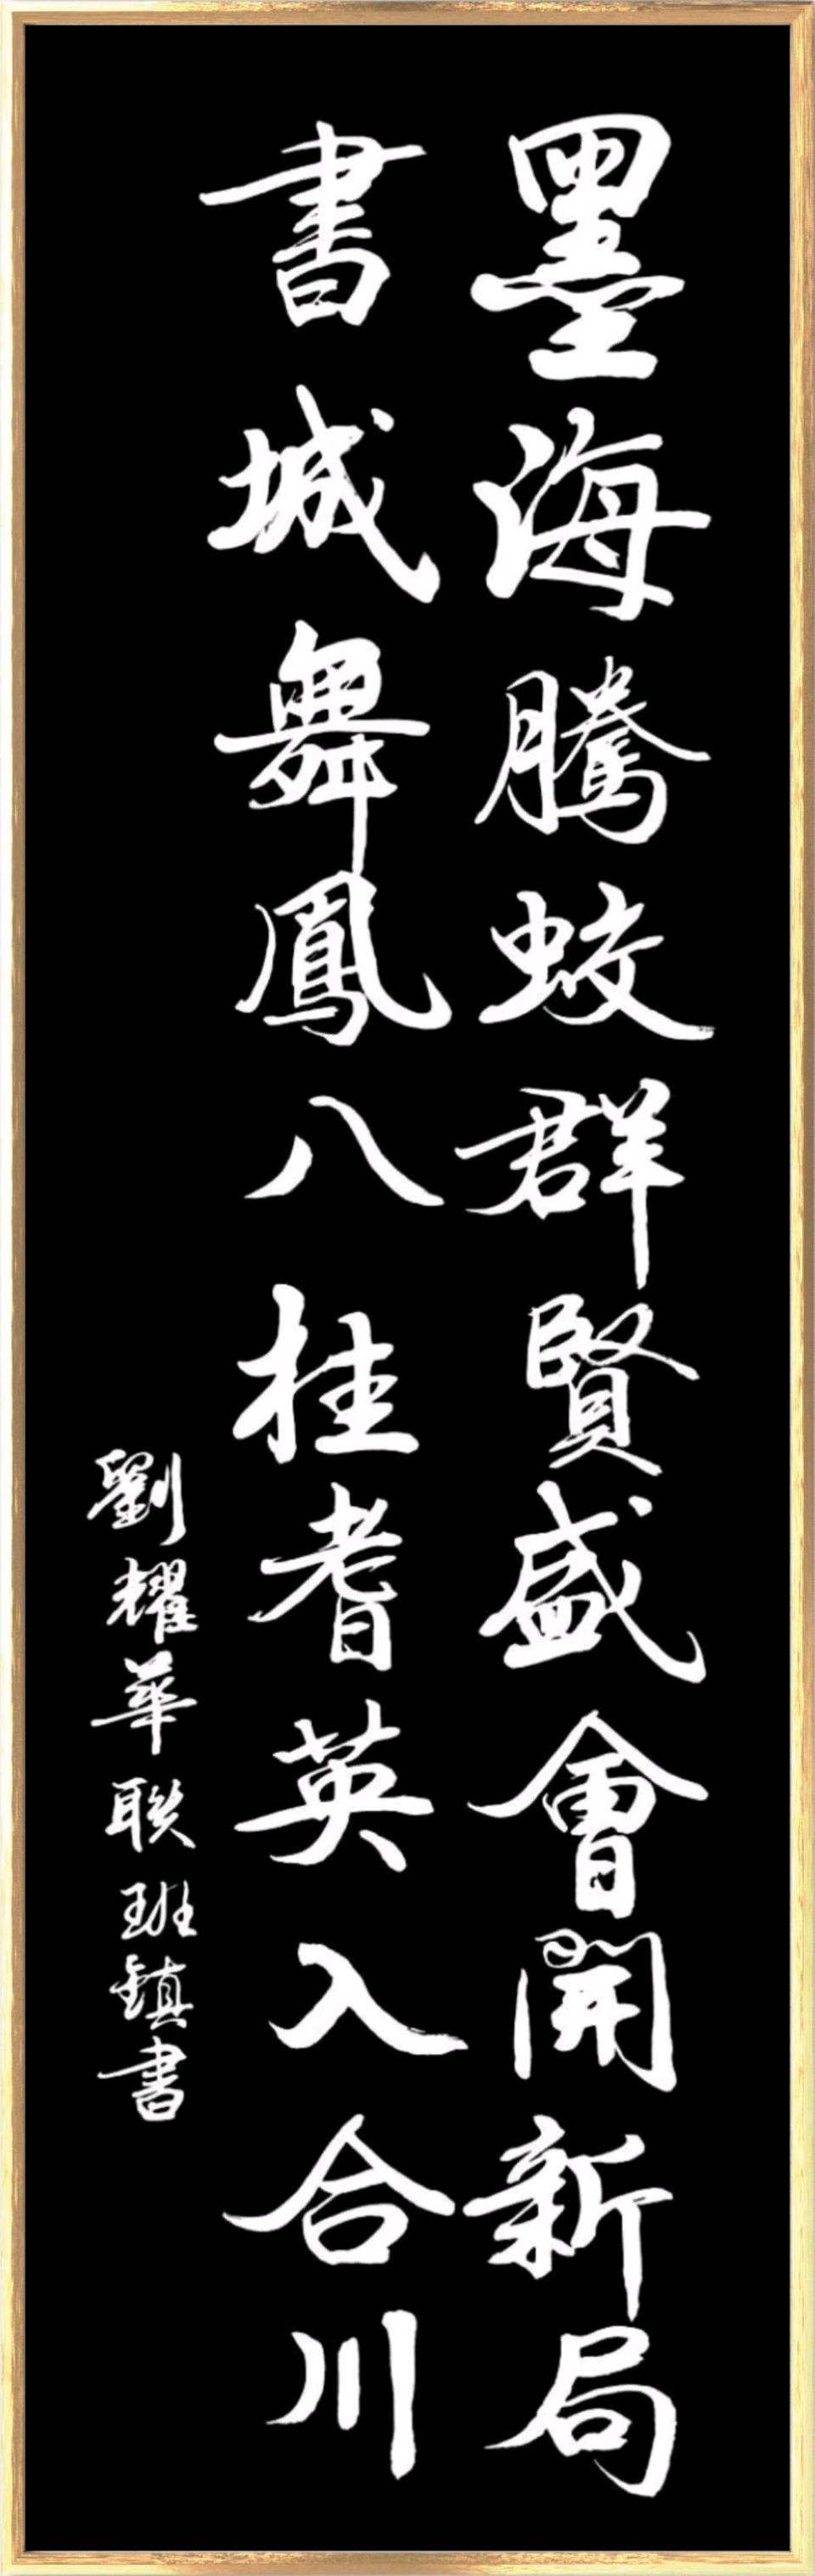 墨海騰蛟群賢盛會開新局
書城舞鳳八桂耆英入合川
劉耀華聯班鎮書